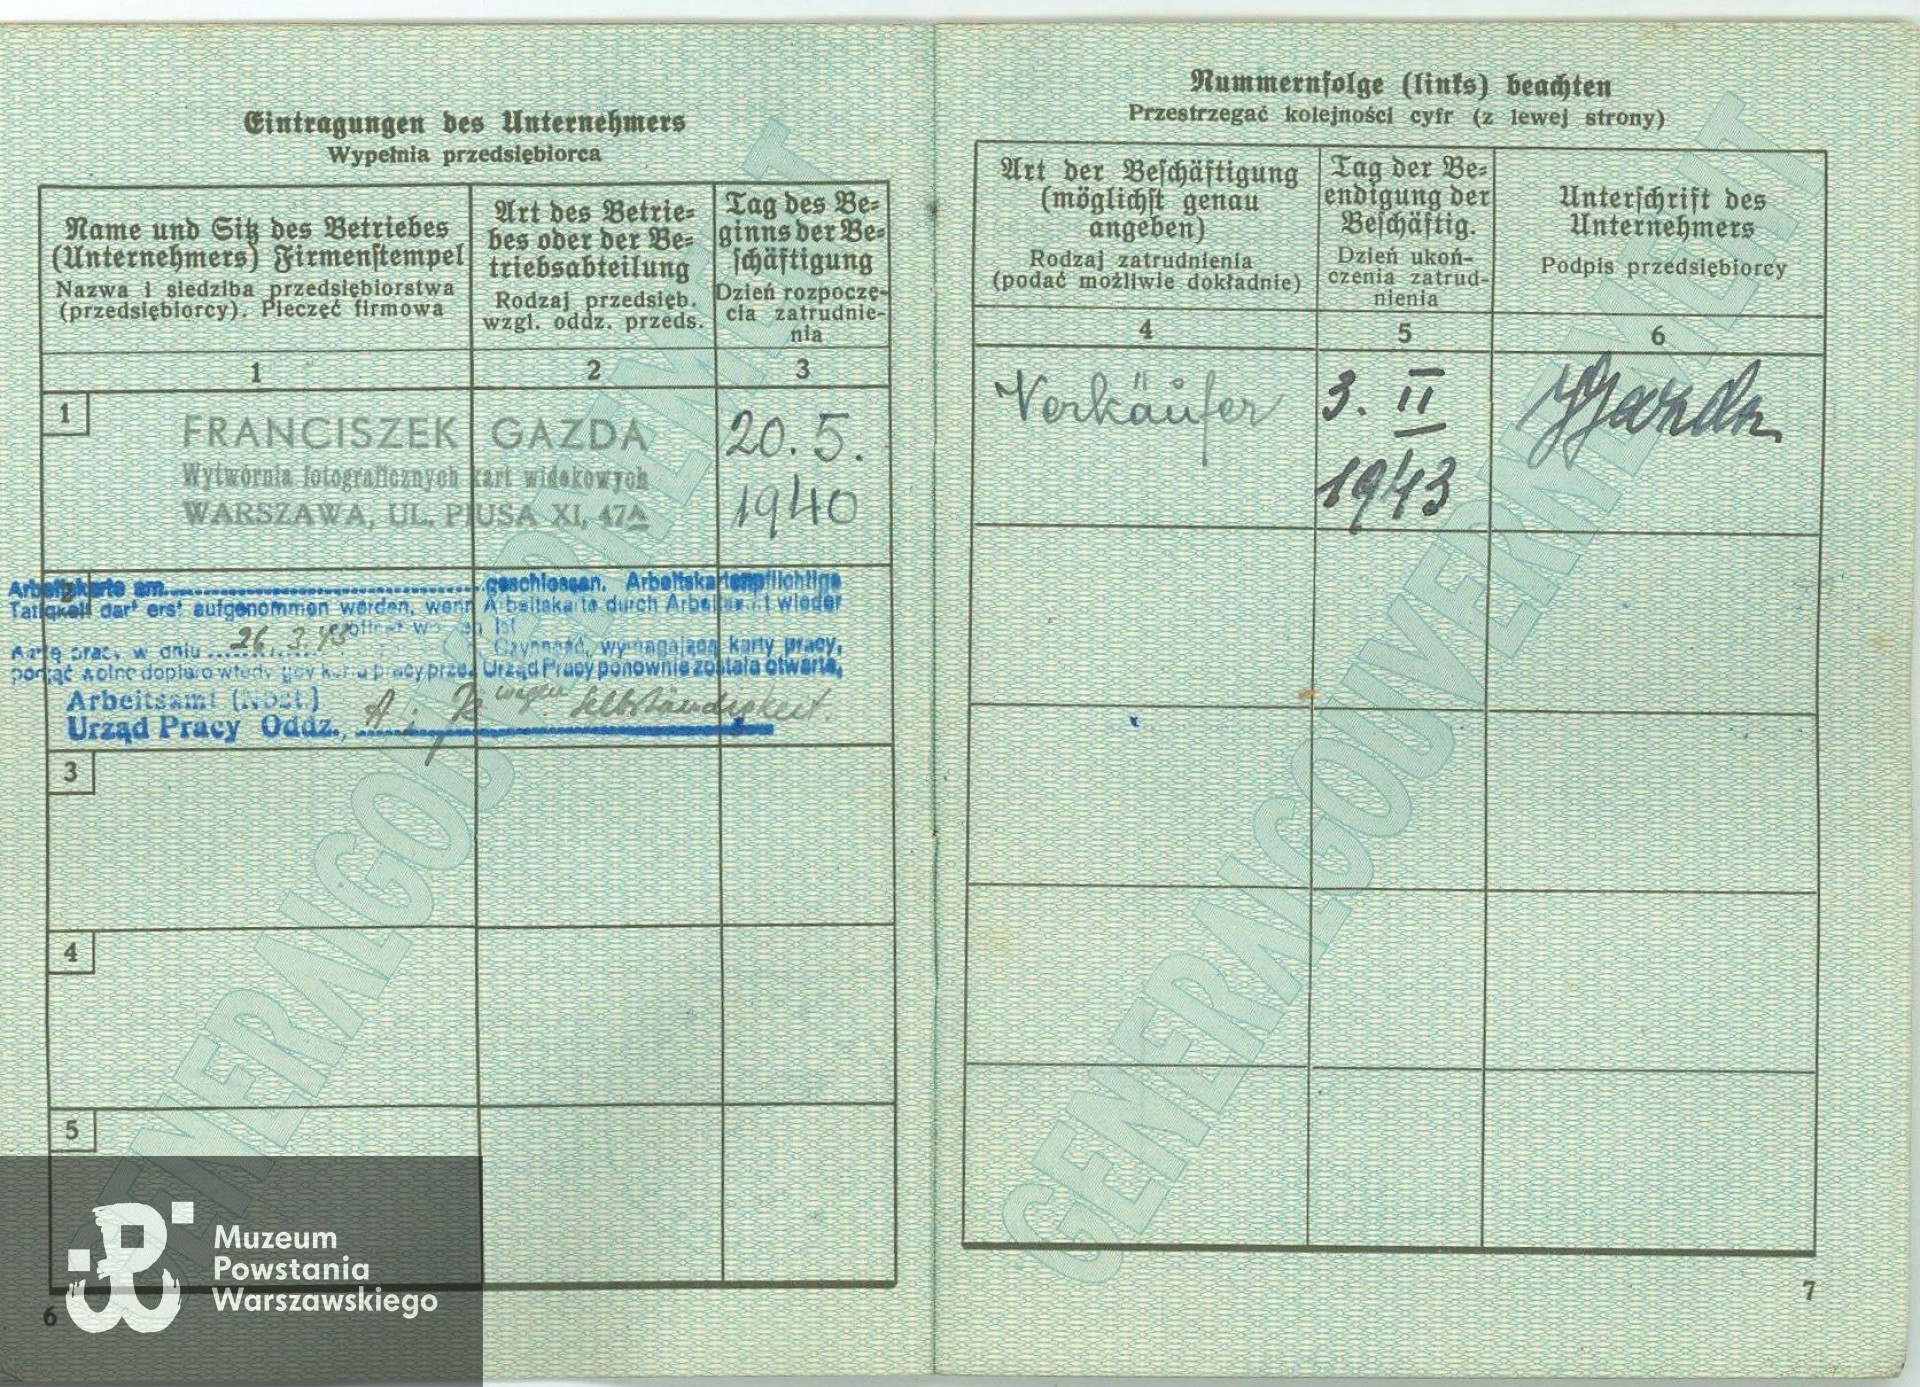 Eintragungen des Unternehmers
Wypełnia przedsiębiorca
Name und Sitz des Betriebes
(Unternehmers) Firmenstempel
Nazwa i siedziba przedsiębiorstwa
(przedsiębiorcy). Pieczęć firmowa
Art des Betrie-
bes oder der Be-
triebsabteilung
Rodzaj przedsięb.
wzgl. oddz. przeds.
Tag des Be-
ginns der Be-
schäftigung
Dzień rozpoczę-
cia zatrudnie-
nia
1
2
3
1
FRANCISZEK GAZDA
Wytwórnia fotograficznych kart widokowych
WARSZAWA, UL. PIUSA XI, 47A
20. 5.
1940
Arbeitskarte am geschlossen. Arbeitskartenpflichtige
Tätigkeit darf erst aufgenommen werden, wenn Arbeitskarte durch Arbeitsamt wieder
eröffnet worden ist
Kartę pracy w dniu 26. 3. 43 Czynność, wymagającą karty pracy,
podjąć wolno dopiero wtedy gdy karta pracy przez Urząd Pracy ponownie została otwarta.
Arbeitsamt (Nbst.)
Urząd Pracy Oddz., wegen Selbständigkeit
3
4
5
6
Nummernfolge (links) beachten
Przestrzegać kolejności cyfr (z lewej strony)
Art der Beschäftigung
(möglichst genau
angeben)
Rodzaj zatrudnienia
(podać możliwie dokładnie)
Tag der Be-
endigung der
Beschäftig.
Dzień ukoń-
czenia zatrud-
nienia
Unterschrift des
Unternehmers
Podpis przedsiębiorcy
4
5
6
Verkäufer
3. II
1943
Gazda
7
GENERALGOUVERNEMENT
GENERALGOUVERNEMENT
Muzeum
Powstania
Warszawskiego